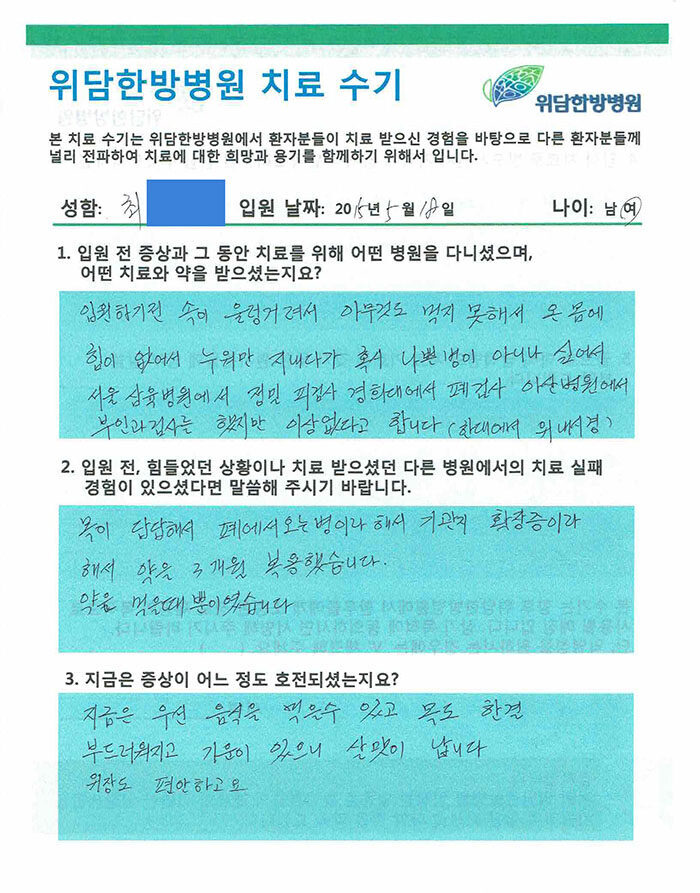 위담한방병원 치료 수기
위담한방병원
본 치료 수기는 위담한방병원에서 환자분들이 치료 받으신 경험을 바탕으로 다른 환자분들께
널리 전파하여 치료에 대한 희망과 용기를 함께하기 위해서 입니다.
성함: 최 입원 날짜: 2015년 5월 18일 나이: 남 여
1. 입원 전 증상과 그 동안 치료를 위해 어떤 병원을 다니셨으며,
어떤 치료와 약을 받으셨는지요?
입원하기전 속이 울렁거려서 아무것도 먹지 못해서 온 몸에
힘이 없어서 누워만 지내다가 혹시 나쁜병이 아니나 싶어서
서울 삼육병원에서 정밀 피검사 경희대에서 폐검사 아산병원에서
부인과검사를 했지만 이상없다고 합니다 (한대에서 위내시경)
2. 입원 전, 힘들었던 상황이나 치료 받으셨던 다른 병원에서의 치료 실패
경험이 있으셨다면 말씀해 주시기 바랍니다.
목이 답답해서 폐에서오는병이라 해서 기관지 확장증이라
해서 약을 3개월 복용했습니다.
약을 먹을때 뿐이였습니다
3. 지금은 증상이 어느 정도 호전되셨는지요?
지금은 우선 음식을 먹을수 있고 목도 한결
부드러워지고 기운이 있으니 살맛이 납니다
위장도 편안하고요